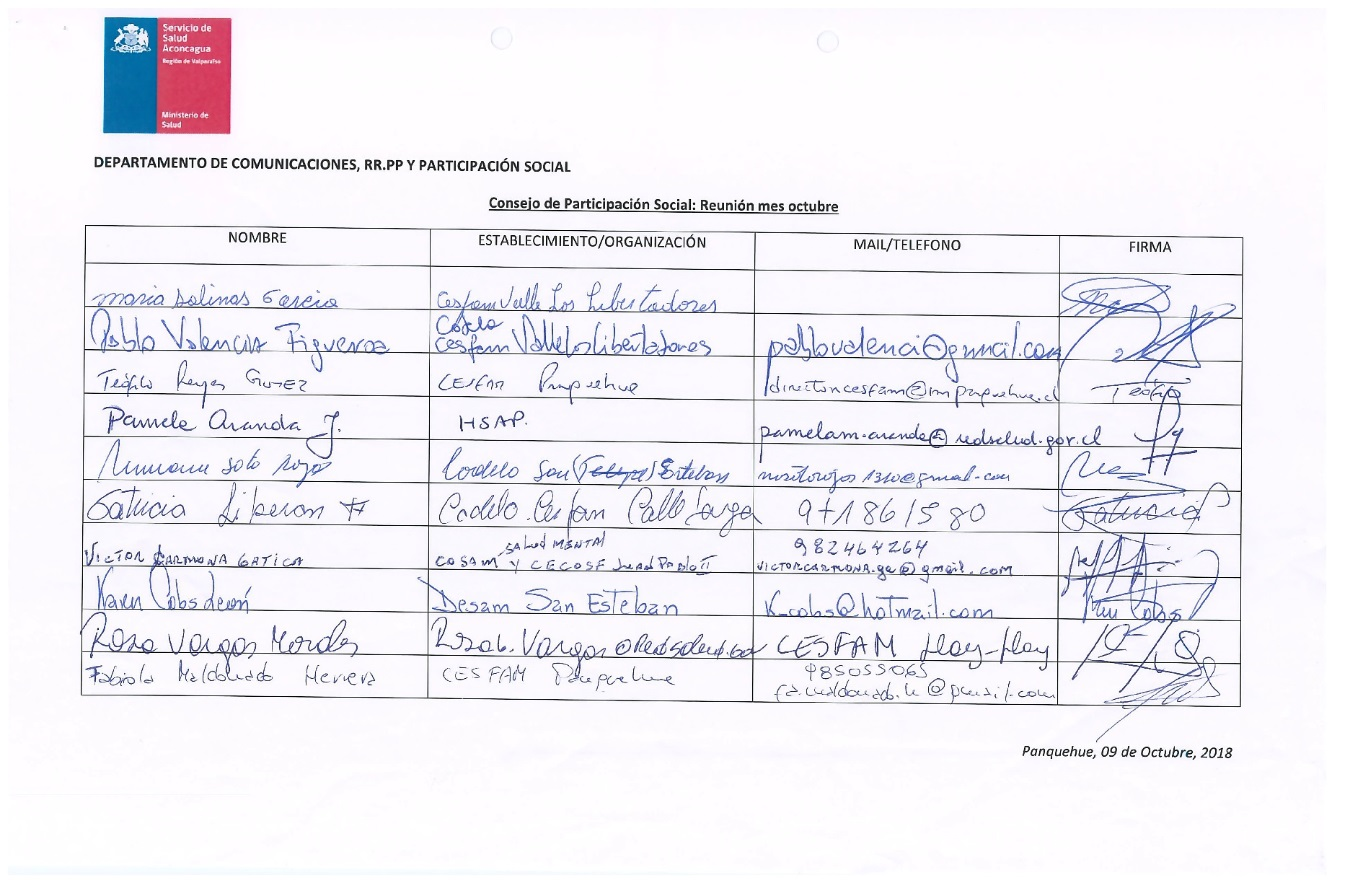 Servicio de
Salud
Aconcagua
Región de Valparaíso
Ministerio de
Salud
DEPARTAMENTO DE COMUNICACIONES, RR.PP Y PARTICIPACIÓN SOCIAL
Consejo de Participación Social: Reunión mes octubre
NOMBRE ESTABLECIMIENTO/ORGANIZACIÓN MAIL/TELEFONO FIRMA
maria salinas Garcia Cesfam Valle Los Libertadores
Pablo Valencia Figueroa Cosela Cesfam Valle los libertadores pablovalenci@gmail.com
Teófilo Reyes CESFAM Panquehue Teófilo
Pamela Aranda J. HSAP. pamelam.aranda@redsalud.gov.cl
soto rojas San Esteban
Patricia Liberon Codelo. Cesfam Calle Larga 971861580 Patricia
VICTOR CARMONA GATICA SALUD MENTAL COSAM Y CECOSF Juan Pablo II 982464264 VICTORCARMONA.ga@gmail.com
Karen Cobs Desam San Esteban Kcobs@hotmail.com
Rosa Vargas Morales Rosab.Vargas@Redsalud.gov CESFAM Llay-Llay
Fabiola Maldonado Herrera CESFAM Panquehue 985055065 fa.maldonado.h@gmail.com
Panquehue, 09 de Octubre, 2018